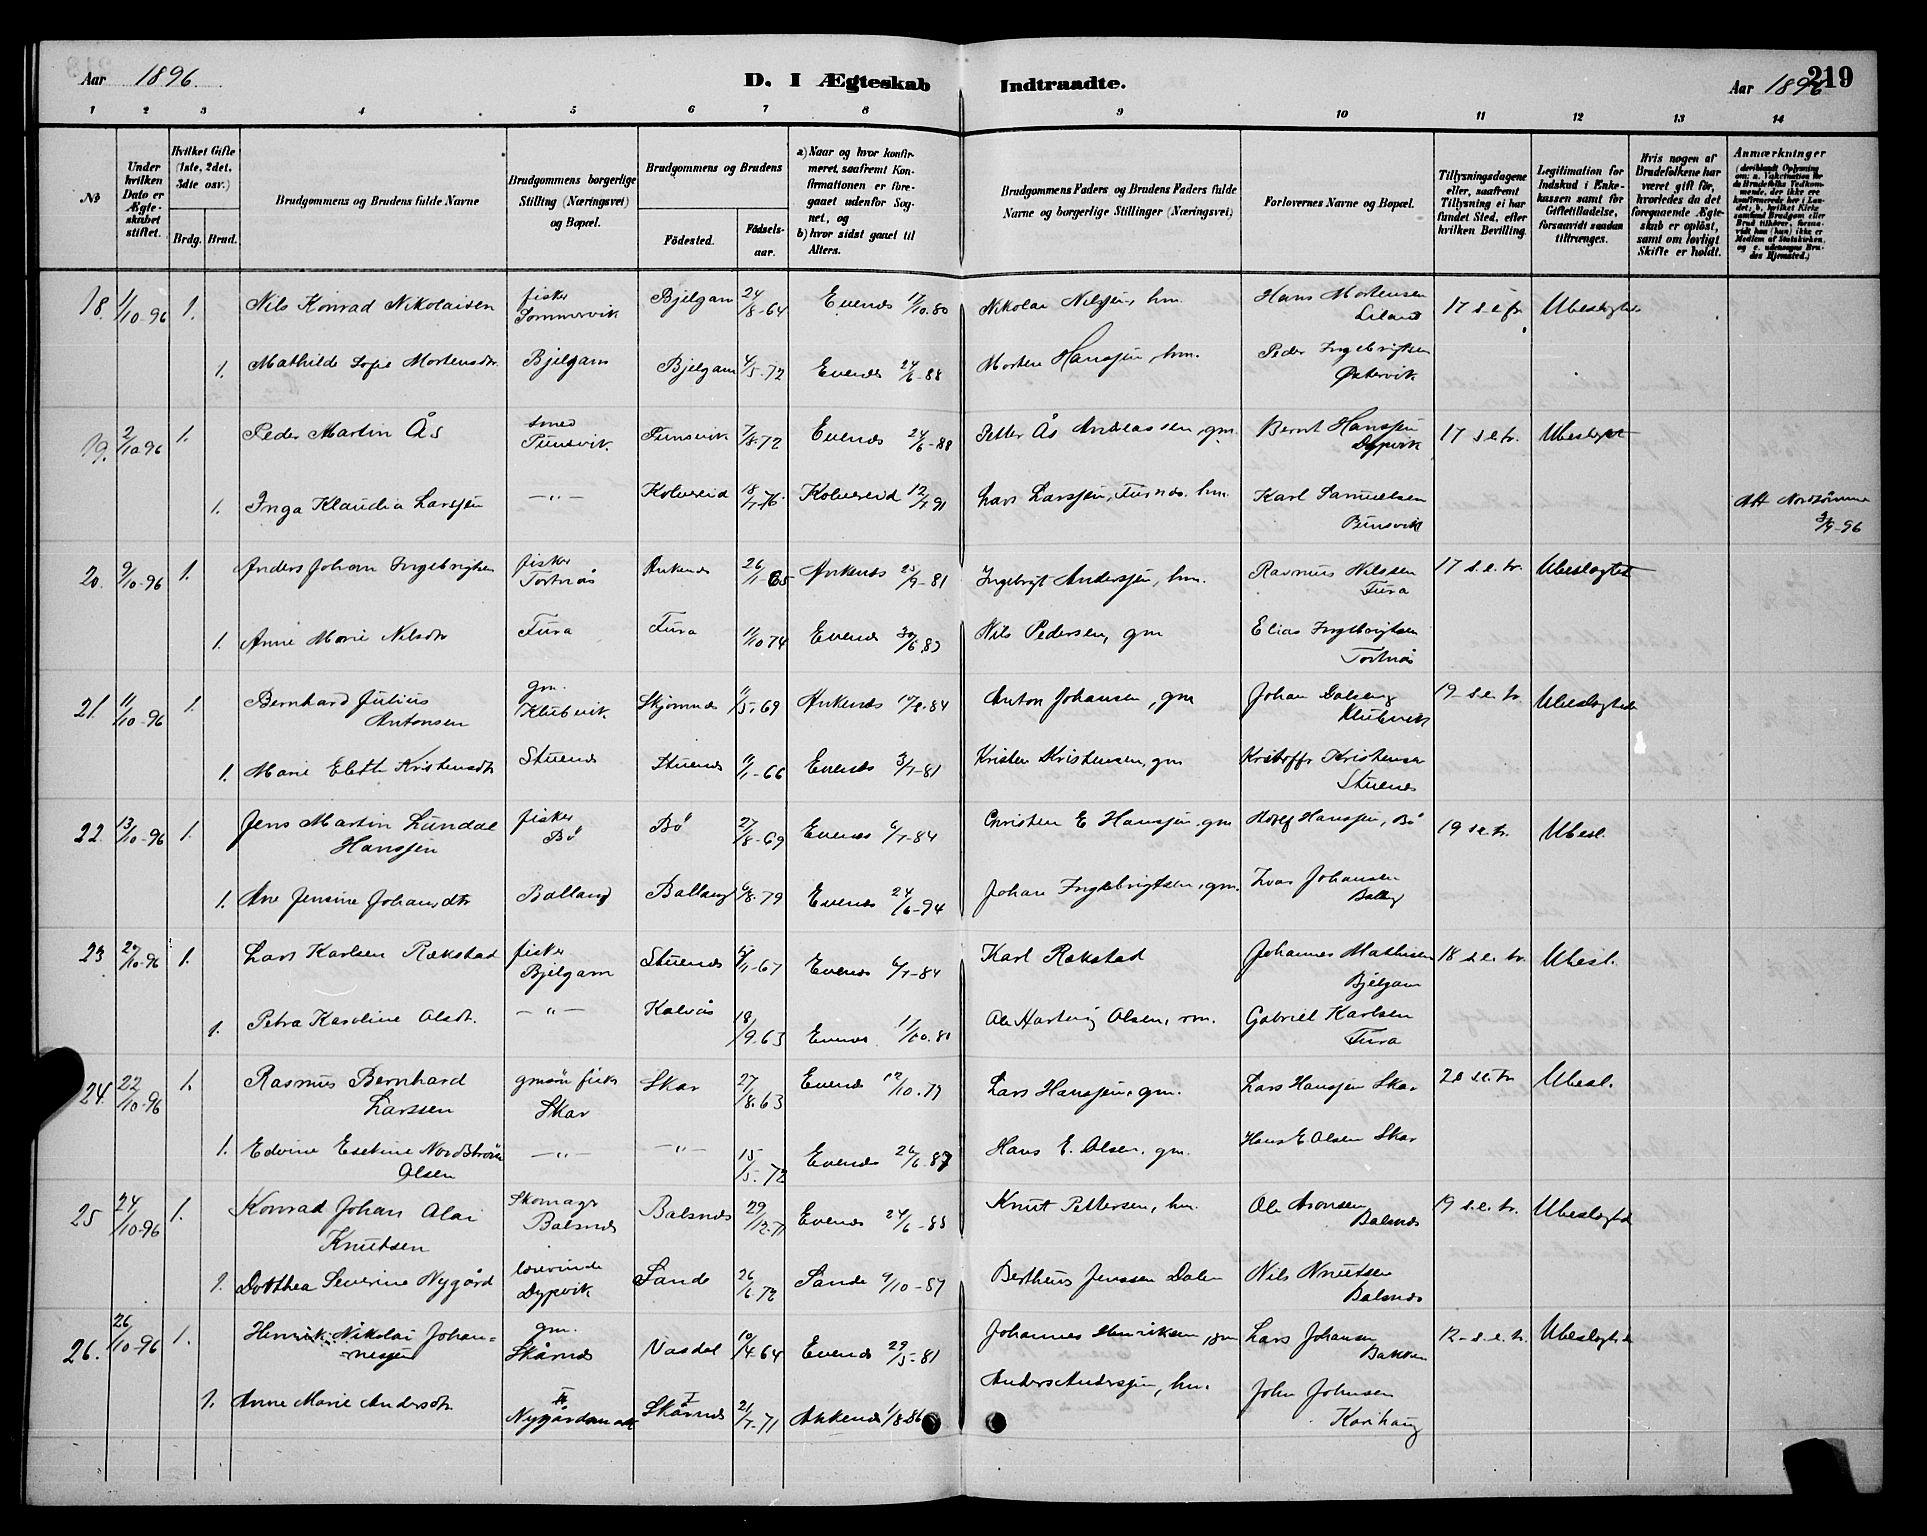 Aar 1896. D. I Ægteskab Indtraadte. Aar 1896 219
1 2 3 4 5 6 7 8 9 10 11 12 13 14
No
Under hvilken Dato er Ægteskabet stiftet.
Hvilket Gifte (1ste, 2det, 3die osv.)
Brdg. Brud.
Brudgommens og Brudens fulde Navne
Brudgommens borgerlige Stilling (Næringsvei) og Bopæl.
Brudgommens og Brudens
Fødested. Fødselsaar.
a) Naar og hvor konfirmeret, saafremt Konfirmationen er foregaaet udenfor Sognet, og
b) hvor sidst gaaet til Alters.
Brudgommens Faders og Brudens Faders fulde Navne og borgerlige Stillinger (Næringsvei)
Forlovernes Navne og Bopæl.
Tillysningsdagene eller, saafremt Tillysning ei har fundet Sted, efter hvilken Bevilling.
Legitimation for Indskud i Enkekassen samt for Giftetilladelse, forsaavidt saadan tiltrænges.
Hvis nogen af Brudefolkene har været gift før, hvorledes da det foregaaende Ægteskab er opløst, samt om lovligt Skifte er holdt.
Anmærkninger
18. 1/10-96 1. Nils Konrad Nikolaisen fisker Sommervik Bjelgam 24/8-64 Evenes 17/10.80 Nikolai Nilsjen, hm. Hans Mortensen Liland 17 s.e.tr. Ubeslægtede
1. Mathilde Sofie Mortensdtr Bjelgam Bjelgam 4/5-72 Evenes 24/6-88 Morten Hansjen, hm. Peder Ingebrigtsen Østervik
19. 2/10-96 1. Peder Martin Ås smed Punsvik Punsvik 7/8-72 Evenes 24/6-88 Petter Ås Andreassen, gm. Bernt Hansjen Dypvik 17 s.e.tr. Ubeslægtet
1. Inga Klaudia Larsjen —"— Kolvereid 18/7-76. Kolvereid 12/7-91 Lars Larsjen, hm. Karl Samuelsen Punsvik
20. 9/10-96 1. Anders Johan Ingebrigtsen fisker Tortnås Ankenes 26/1-65 Ankenes 25/9-81 Ingebrigt Andersjen, hm. Rasmus Nilssen Fura 17 s.e.tr. Ubeslægtet
1. Anne Marie Nilsdtr Fura Fura 11/10 74 Evenes Nils Pedersen, gm Elias Ingebrigtsen Tortnås
21. 11/10-96 1. Bernhard Julius Antonsen gm. Klubvik Skjomnes 11/5-69 Ankenes 17/8-84 Anton Johansen, gm Johan Klubvik 19 s.e.tr. Ubeslægtede
1. Marie Eleth Kristensdtr Stuenes Stuenes 11/1-66 Evenes 3/7-81 Kristen Kristensen, gm Kristoffer Kristensen Stuenes
22. 13/10-96 1. Jens Martin Lundal Hansjen fisker Bø Bø 27/8-69 Evenes 6/7-84 Christen E Hansjen, gm Hansjen, Bø 19 s.e.tr. Ubesl.
1. Ane Jensine Johansdtr Balland Balland 6/8-79 Evenes 24/6-94 Johan Ingebrigtsen, gm. Ivar Johansen
23 20/10-96 1. Lars Karlsen Rækstad fisker Bjelgam Stuenes Evenes 6/7-84 Karl Rækstad Johannes Mathisen Bjelgam 18 s.e.tr. Ubesl.
1. Petra Karoline Olsdtr. —"— Kalvås 18/9-63 Evenes Ole Hartvig Olsen, Gabriel Karlsen Fura
24. 22/10-96 1. Rasmus Bernhard Larssen gmsøn fisker Skar Skar 27/8.63 Evenes 12/10.79 Lars Hansjen, gm. Lars Hansjen Skar 20 s.e.tr Ubesl.
1. Edvine Esekine Nordstrøm Olsen —"— —"— 15/5-72 Evenes 26/6-87 Hans E. Olsen, gm. Hans E Olsen Skar
25 24/10-96 1. Konrad Johan Olai Knutsen Skomager Balsnes Balsnes 29/12-71 Evenes 24/6-88 Knut Pettersen, hm. Ole Aronsen Balsnes 19 s.e.tr. Ubeslægtede
1. Dorthea Severine Nygård lærerinde Dypvik Sande 26/6-72 Sande 9/10-87 Bertheus Jenssen Dalen Nils Knutsen Balsnes
26. 26/10-96 1. Henrik Nikolai Johannesjen gm. Skårnes Vasdal 10/4-64 Evenes 29/5-81 Johannes Henriksen, gm Lars Johansen Bakken 12- s.e.tr. Ubeslægtede
1. Anne Marie Andersdtr Nygårdsmark Skårnes 21/7-71 Ankenes 1/8-86 Anders Andersjen, hm. John Johnsen Karihaug